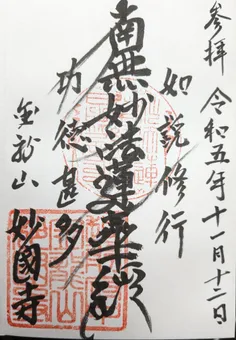 参拝 令和五年十一月十二日
如説修行
南無妙法蓮華経
功徳甚多
妙國寺